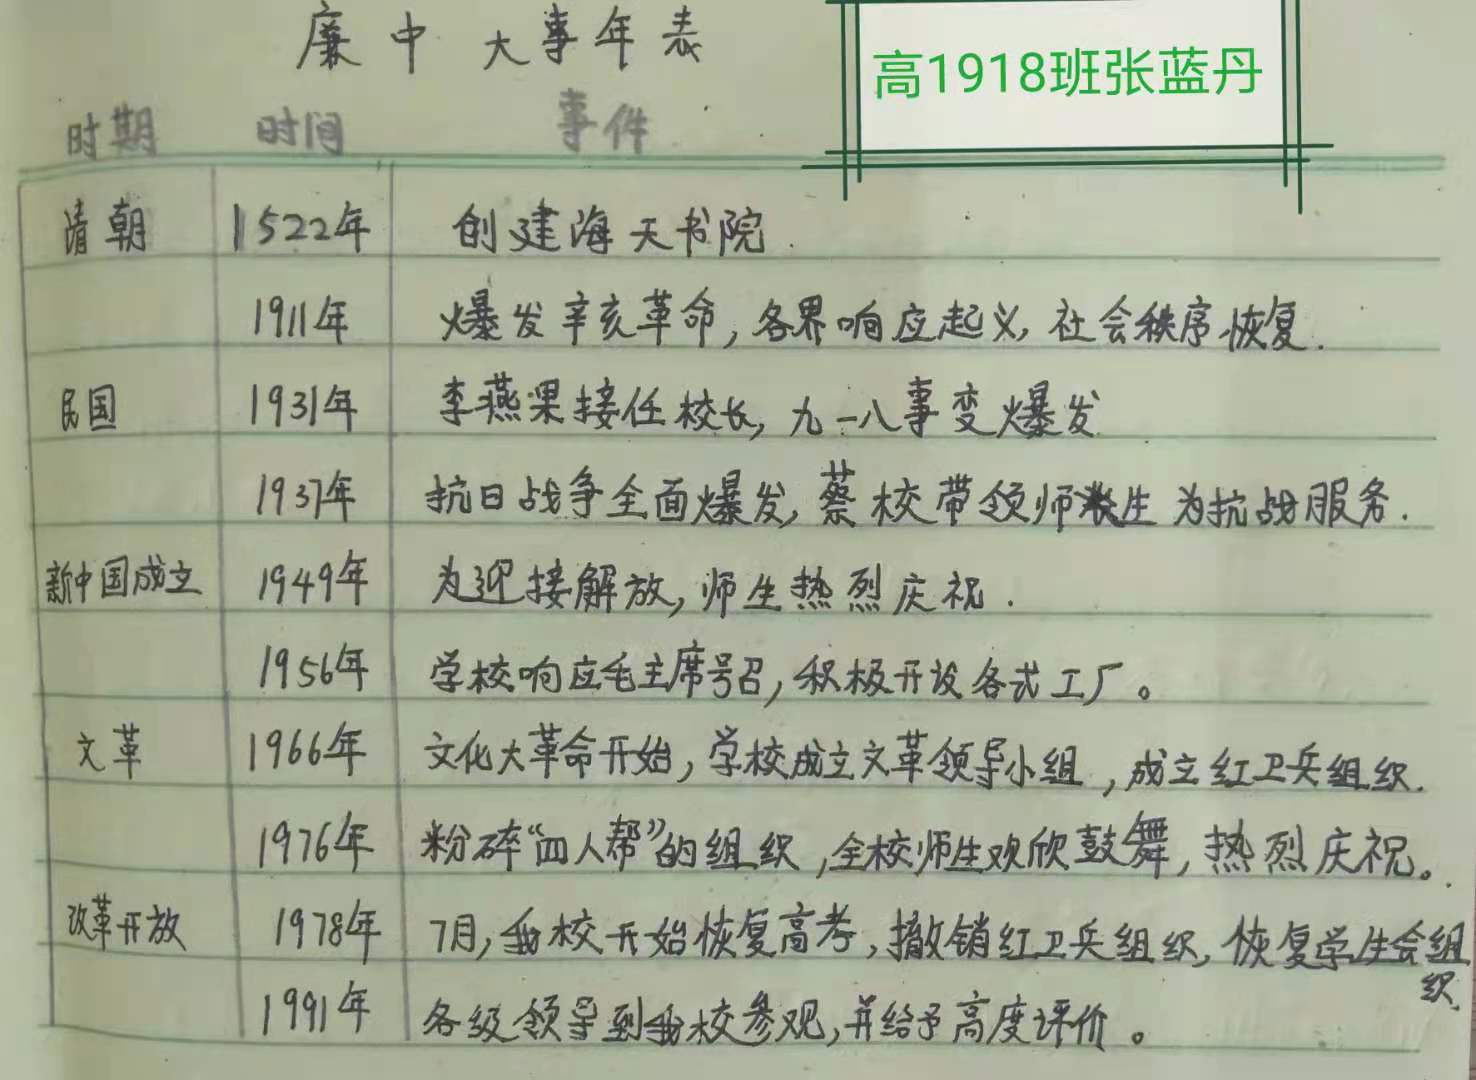 廉中大事年表
高1918班张蓝丹
时期 时间 事件
清朝 1522年 创建海天书院.
1911年 爆发辛亥革命,各界响应起义,社会秩序恢复.
民国 1931年 李燕果接任校长,九一八事变爆发
1937年 抗日战争全面爆发,蔡校带领师生为抗战服务.
新中国成立 1949年 为迎接解放,师生热烈庆祝.
1956年 学校响应毛主席号召,积极开设各式工厂。
文革 1966年 文化大革命开始,学校成立文革领导小组,成立红卫兵组织.
1976年 粉碎“四人帮”的组织,全校师生欢欣鼓舞,热烈庆祝。
改革开放 1978年 7月,我校开始恢复高考,撤销红卫兵组织,恢复学生会组
织.
1991年 各级领导到我校参观,并给予高度评价。